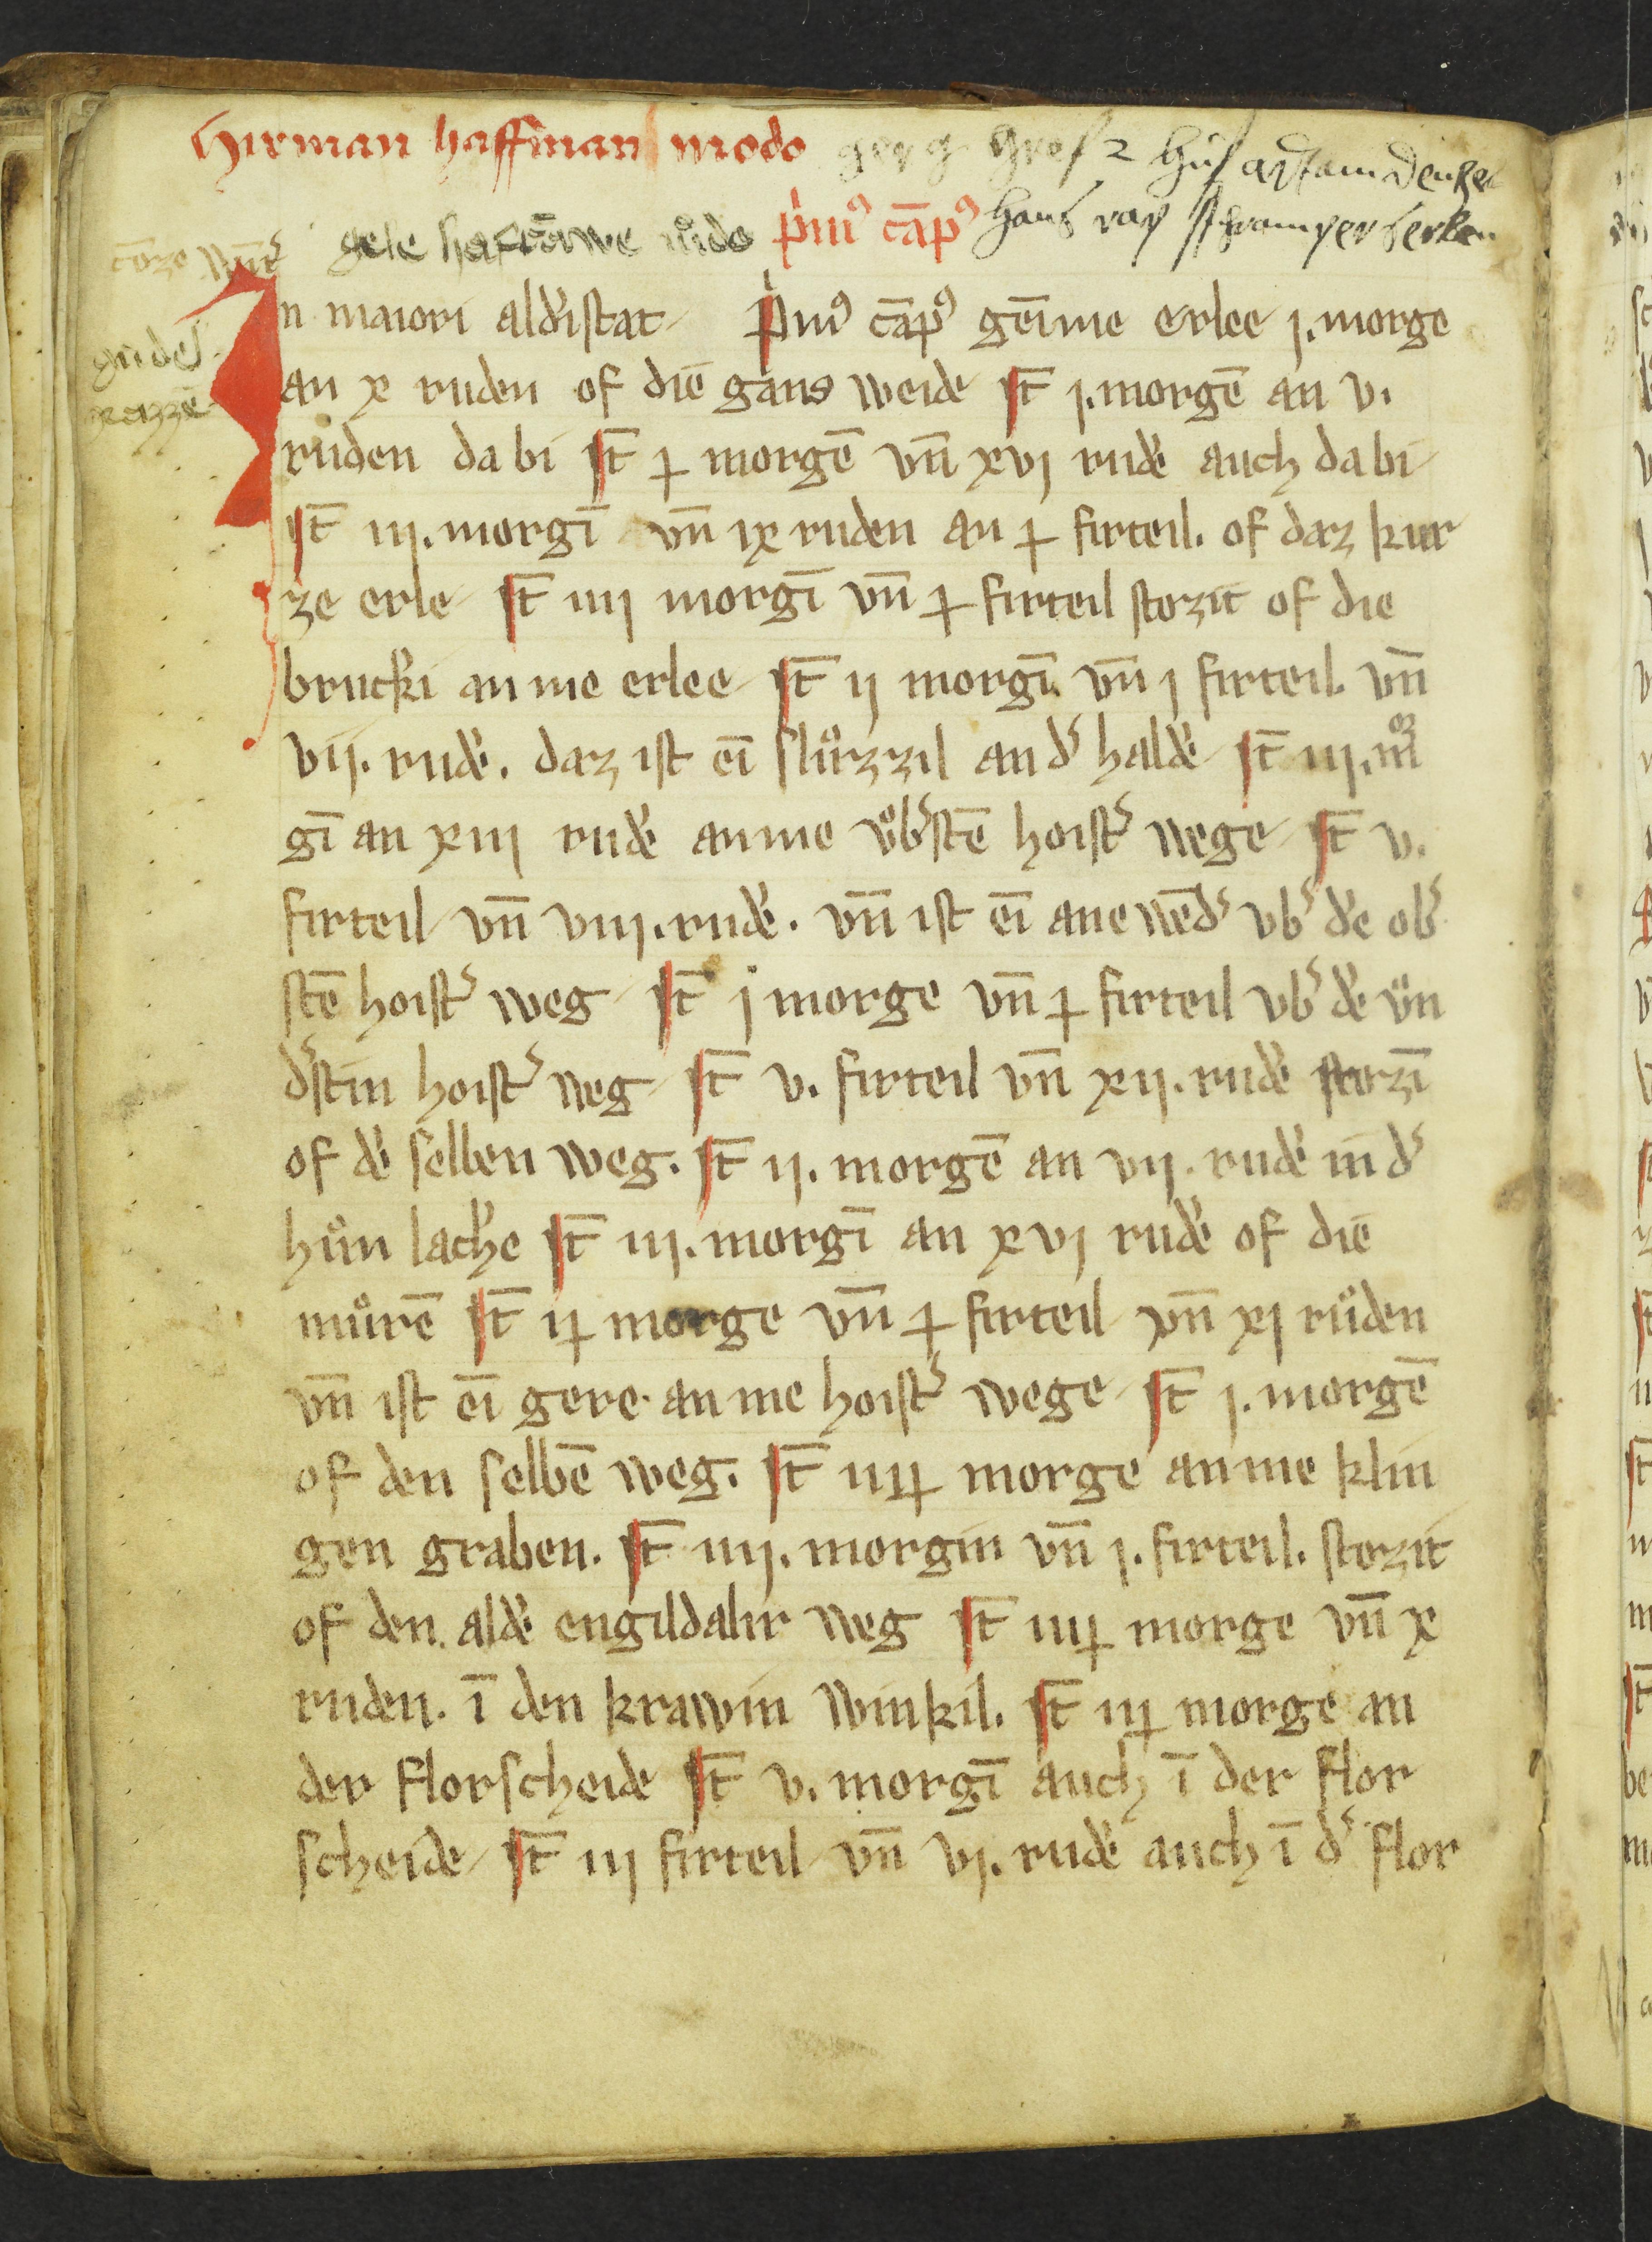 hirman haffman modo gerg gref 2 hus adam denkel
conze gele modo p̍mꝰ cāpꝰ hans
gudel
In maiori ald̕istat p̍mꝰ cāpꝰ geīme erlee j. morge
an x ruden of diē gans weide st̄ j. morgē an v.
růden da bi st̄ ꝉ morgē vn̄ xvj rudē auch da bi
st̄ iij. morgī vn̄ ix ruden an ꝉ firteil. of daz kur
ze erle st̄ iiij morgī vn̄ ꝉ firteil stozit of die
brucki an me erlee st̄ ij morgī vn̄ j firteil. vn̄
vij. rudē. daz ist eī sluͦzzil an dˢ haldē st̄ iij. mͦ
gī an xiij rudē anme vͦbˢstē hoistˢ wege st̄ v.
firteil vn̄ viij. rudē. vn̄ ist eī ane wēdˢ vbˢ dē obˢ
stē hoistˢ weg st̄ j morge vn̄ ꝉ firteil vbˢ dē vͦn
dˢstin hoistˢ weg st̄ v. firteil vn̄ xij. rudē stozī
of dē selben weg. st̄ ij. morgē an vij. rudē in dˢ
hůn lache st̄ iij. morgī an xvj rudē of diē
můrē st̄ iꝉ morge vn̄ ꝉ firteil vn̄ xj růden
vn̄ ist eī gere. an me hoistˢ wege st̄ j. morgē
of den selbē weg. st̄ iiꝉ morge anme klin
gen graben. st̄ iiij. morgin vn̄ j. firteil. stozit
of den. aldē engildalir weg st̄ iiiꝉ morge vn̄ x
ruden. ī den krawin winkil. st̄ iiꝉ morge an
der florscheide st̄ v. morgī auch ī der flor
scheide st̄ iij firteil vn̄ vj. rudē auch ī dˢ flor